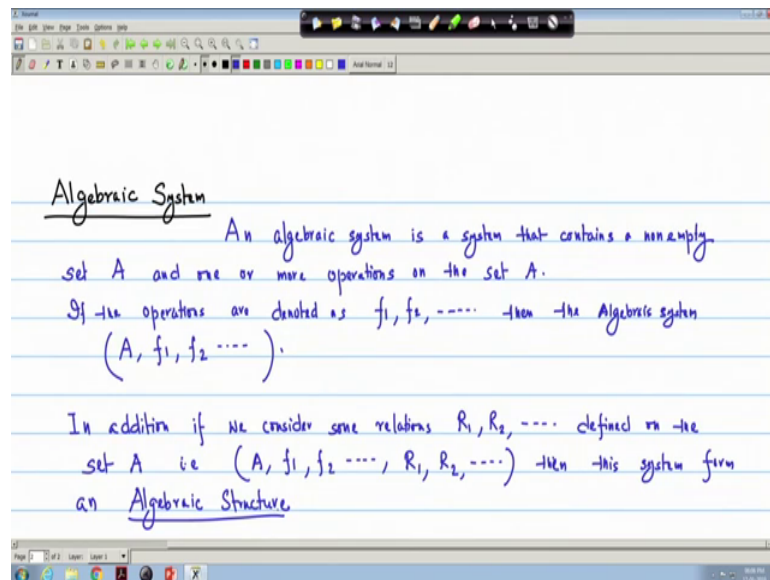 Journal
File Edit View Page Tools Options Help
Page 2 of 2 Layer: Layer 1
Algebraic System
An algebraic system is a system that contains a nonempty
set A and one or more operations on the set A.
If the operations are denoted as f1, f2, ----- then the Algebraic system
(A, f1, f2 ----).
In addition if we consider some relations R1, R2, ---- defined on the
set A i.e (A, f1, f2 ----, R1, R2, ----) then this system form
an Algebraic Structure